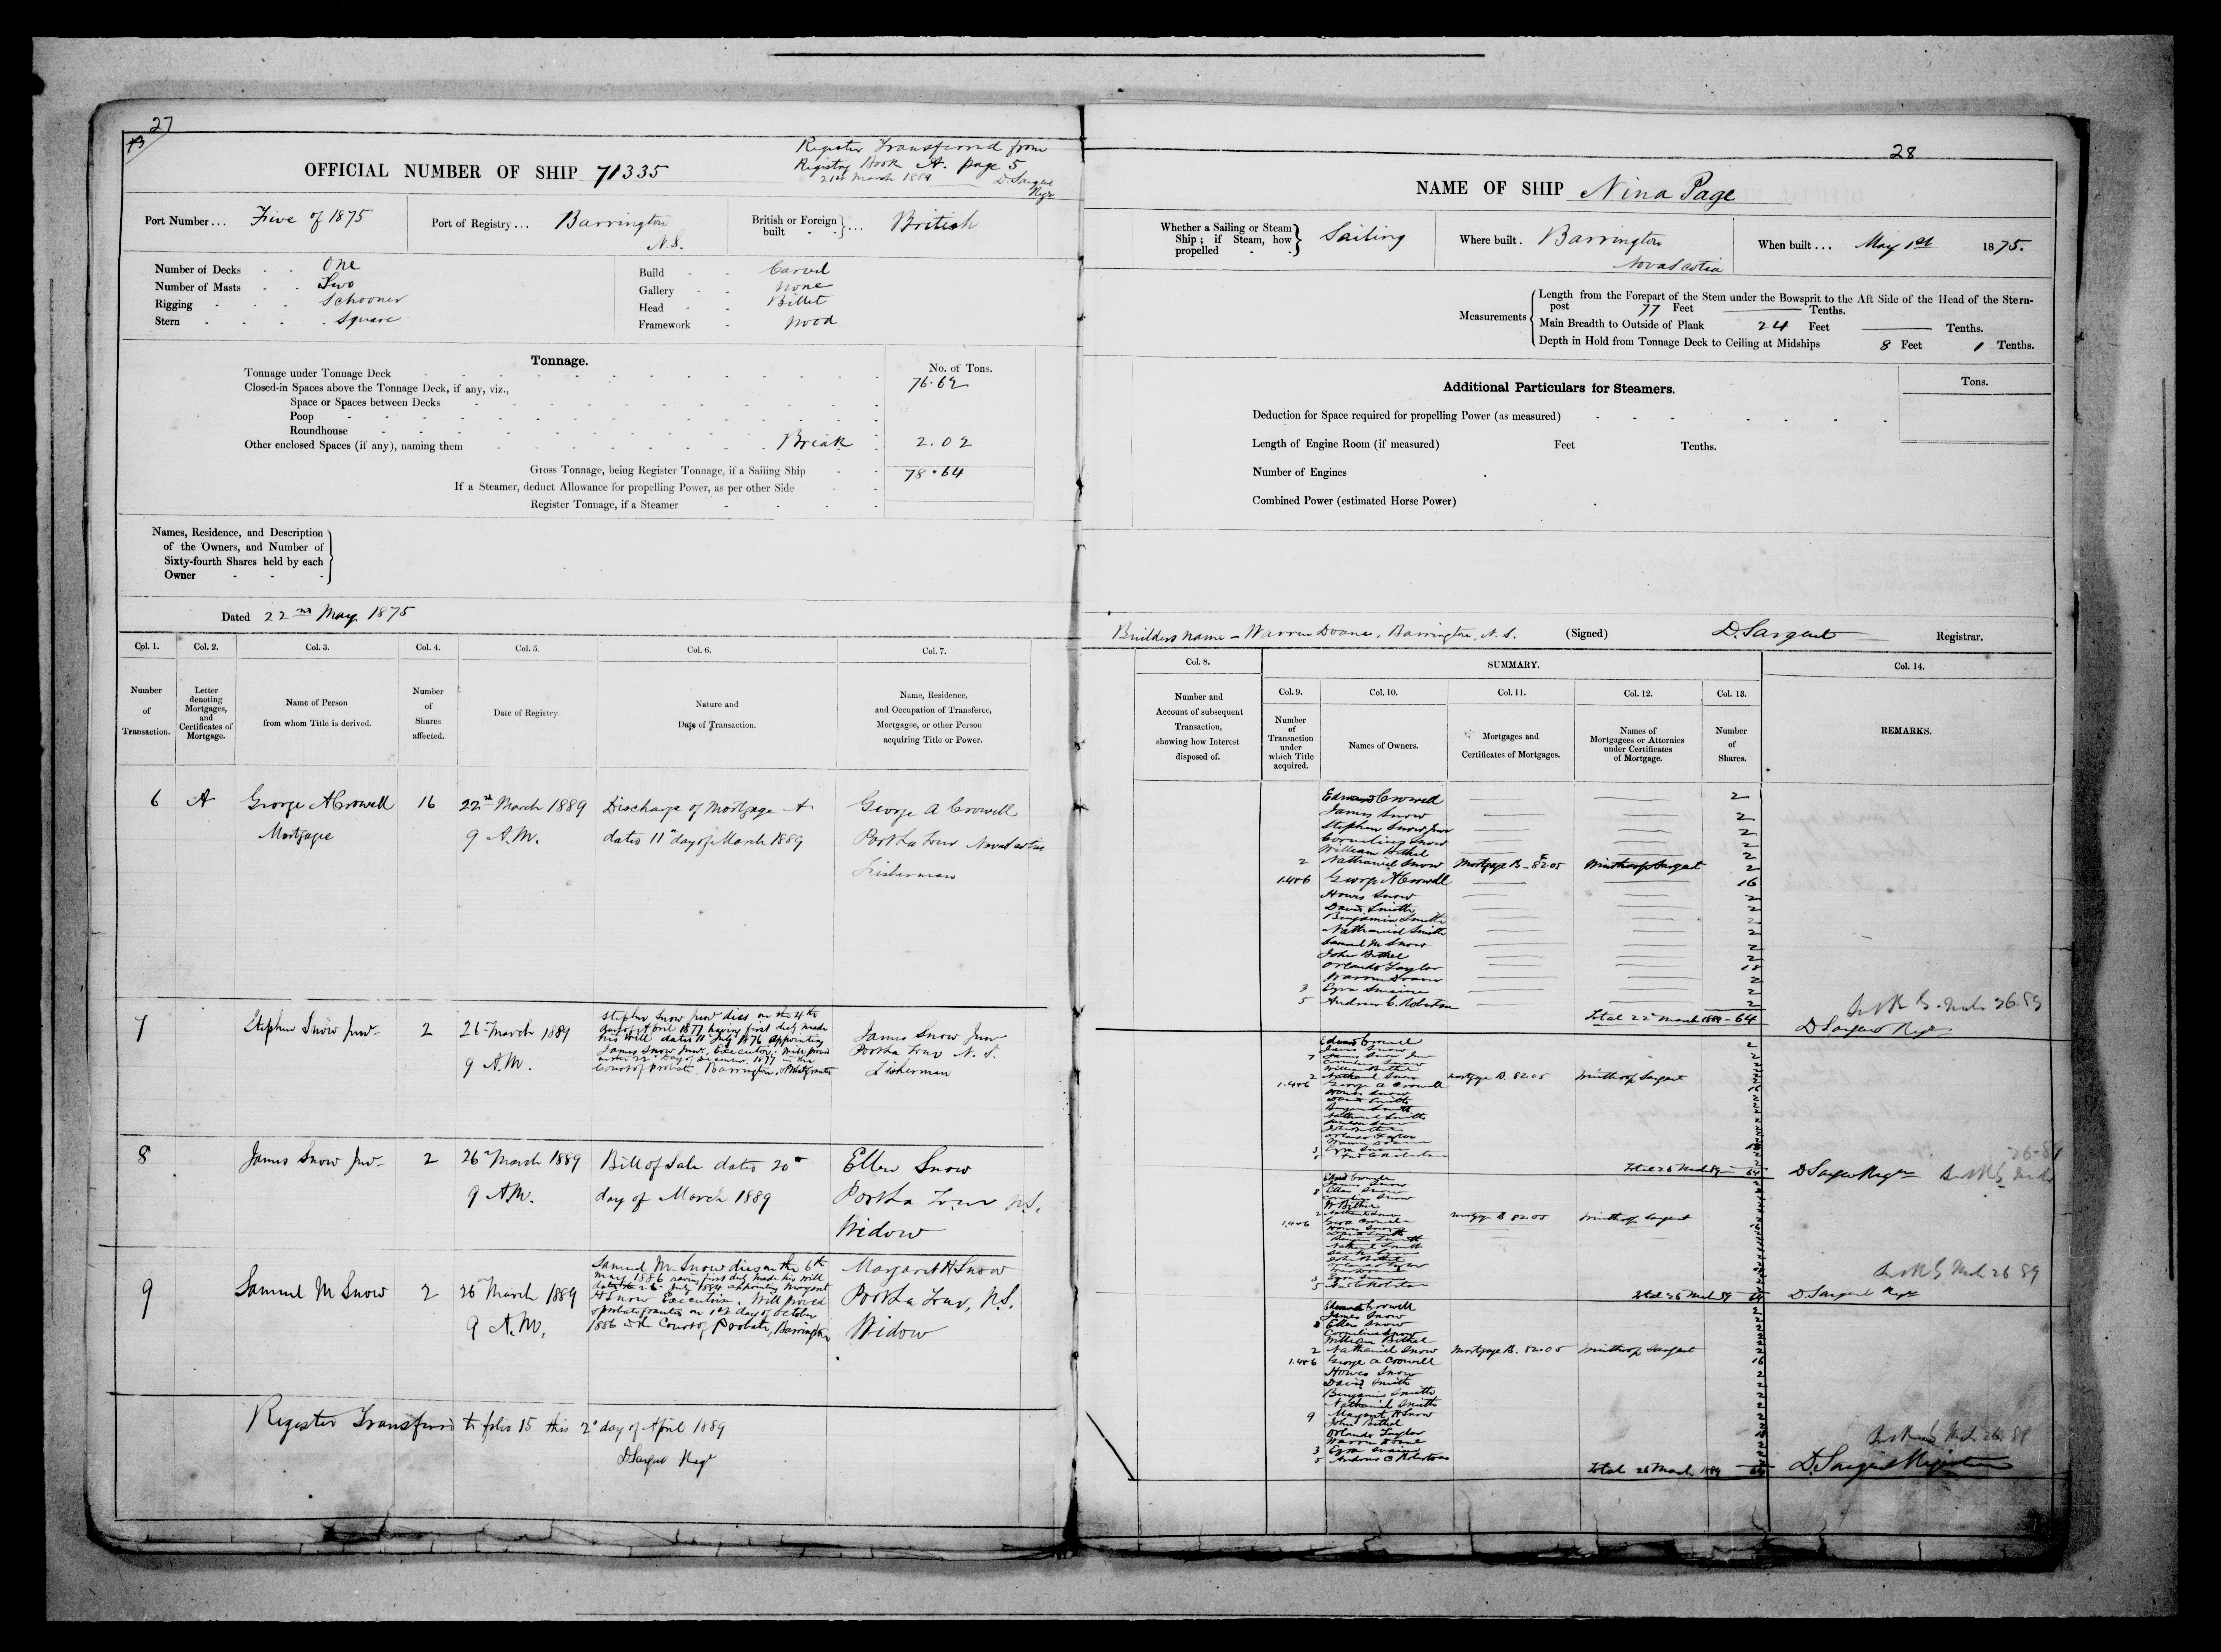 27
OFFICIAL NUMBER OF SHIP 71335
Register Transferred from
Registry Book A. page 5
21st March 1889 D. Sargent
Regr
Port Number... Five of 1875
Port of Registry... Barrington
N.S.
British or Foreign built } ... British
Number of Decks - - One
Number of Masts - - Two
Rigging - - - Schooner
Stern - - - - Square
Build - - Carvel
Gallery - - None
Head - - Billet
Framework - Wood
Tonnage.
No. of Tons.
Tonnage under Tonnage Deck 76.62
Closed-in Spaces above the Tonnage Deck, if any, viz.,
Space or Spaces between Decks
Poop
Roundhouse
Other enclosed Spaces (if any), naming them Break 2.02
Gross Tonnage, being Register Tonnage, if a Sailing Ship 78.64
If a Steamer, deduct Allowance for propelling Power, as per other Side
Register Tonnage, if a Steamer
Names, Residence, and Description
of the Owners, and Number of
Sixty-fourth Shares held by each
Owner
Dated 22nd May 1875
Col. 1. Col. 2. Col. 3. Col. 4. Col. 5. Col. 6. Col. 7.
Number of Transaction.
Letter denoting Mortgages, and Certificates of Mortgage.
Name of Person from whom Title is derived.
Number of Shares affected.
Date of Registry.
Nature and Date of Transaction.
Name, Residence, and Occupation of Transferee, Mortgagee, or other Person acquiring Title or Power.
6 A George A Crowell 16 22nd March 1889 Discharge of Mortgage A George A Crowell
Mortgagee 9 A.M. dated 11th day of March 1889 Port La Tour Nova Scotia
Fisherman
7 Stephen Snow Junr 2 26th March 1889
9 A.M.
Stephen Snow Junr died on the 4th
day of April 1877 having first duly made
his will dated 11th July 1876 appointing
James Snow Junr Executor. Will proved
Court of Probate Barrington
James Snow Junr
Port La Tour N.S.
Fisherman
8 James Snow Junr 2 26th March 1889 Bill of Sale dated 20th Ellen Snow
9 A.M. day of March 1889 Port La Tour N.S.
Widow
9 Samuel M Snow 2 26th March 1889
9 A.M.
Samuel M Snow died on the 6th
May 1886 having first duly made his will
dated the 26th July 1884 appointing Margaret
H Snow Executrix. Will proved
& probate granted on 1st day of October
1886 in the Court of Probate, Barrington
Margaret H Snow
Port La Tour, N.S.
Widow
Register Transferred to folio 15 this 2d day of April 1889
D Sargent Regr
28
NAME OF SHIP Nina Page
Whether a Sailing or Steam Ship; if Steam, how propelled } Sailing
Where built. Barrington
Nova Scotia
When built... May 1st 1875.
Measurements
Length from the Forepart of the Stem under the Bowsprit to the Aft Side of the Head of the Stern-
post 77 Feet Tenths.
Main Breadth to Outside of Plank 24 Feet Tenths.
Depth in Hold from Tonnage Deck to Ceiling at Midships 8 Feet 1 Tenths.
Additional Particulars for Steamers.
Tons.
Deduction for Space required for propelling Power (as measured)
Length of Engine Room (if measured) Feet Tenths.
Number of Engines
Combined Power (estimated Horse Power)
Builders name - Warren Doane, Barrington, N.S. (Signed) D. Sargent Registrar.
Col. 8. SUMMARY. Col. 14.
Col. 9. Col. 10. Col. 11. Col. 12. Col. 13.
Number and Account of subsequent Transaction, showing how Interest disposed of.
Number of Transaction under which Title acquired.
Names of Owners.
Mortgages and Certificates of Mortgages.
Names of Mortgagees or Attornies under Certificates of Mortgage.
Number of Shares.
REMARKS.
Edward Crowell 2
James Snow 2
Stephen Snow Junr 2
Cornelius Snow 2
William Bethel 2
2 Nathaniel Snow Mortgage B - 82.05 Winthrop Sargent 2
1.4&6 George A Crowell 16
Howes Snow 2
David Smith 2
Benjamin Smith 2
Nathaniel Smith 2
Samuel M Snow 2
John Bethel 2
Orlando Taylor 18
Warren Doane 2
3 Ezra Swaine 2
5 Andrew C. Robertson 2
Total 22d March 1889 - 64
D Sargent Regr
Edward Crowell
James Snow
7 James Snow Junr
Cornelius Snow
William Bethel
2 Nathaniel Snow Mortgage B. 82.05 Winthrop Sargent
1.4&6 George A Crowell
Howes Snow
David Smith
Total 26 March 89 64
D Sargent Regr
8 Ellen Snow
Mortgage B 82.05 Winthrop Sargent
1.4&6
Total 26 March 89 64
D Sargent Regr
Edward Crowell
James Snow
8 Ellen Snow
Cornelius Snow
William Bethel
2 Nathaniel Snow Mortgage B. 82.05 Winthrop Sargent 2
1.4&6 George A Crowell 16
Howes Snow 2
David Smith 2
Benjamin Smith 2
Nathaniel Smith 2
9 Margaret H Snow
John Bethel
Orlando Taylor
Warren Doane
3 Ezra Swaine
5 Andrew C Robertson
Total 26 March 1889 64
D. Sargent Registrar